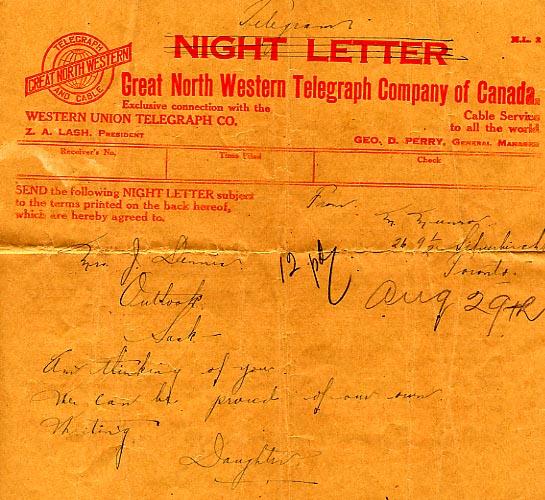 Telegram
NIGHT LETTER
N.L. 2
TELEGRAPH
GREAT NORTH WESTERN
AND CABLE
Great North Western Telegraph Company of Canada.
Exclusive connection with the
WESTERN UNION TELEGRAPH CO.
Cable Service
to all the world
Z. A. LASH, PRESIDENT
GEO. D. PERRY, GENERAL MANAGER
Receiver's No.
Time Filed
Check
SEND the following NIGHT LETTER subject
to the terms printed on the back hereof,
which are hereby agreed to.
From
Munro
26 9½
Toronto.
12 pd
Aug 29th
Mrs J. Dennis
Outlook
Sask
Am thinking of you.
We can be proud of our own.
Writing
Daughter